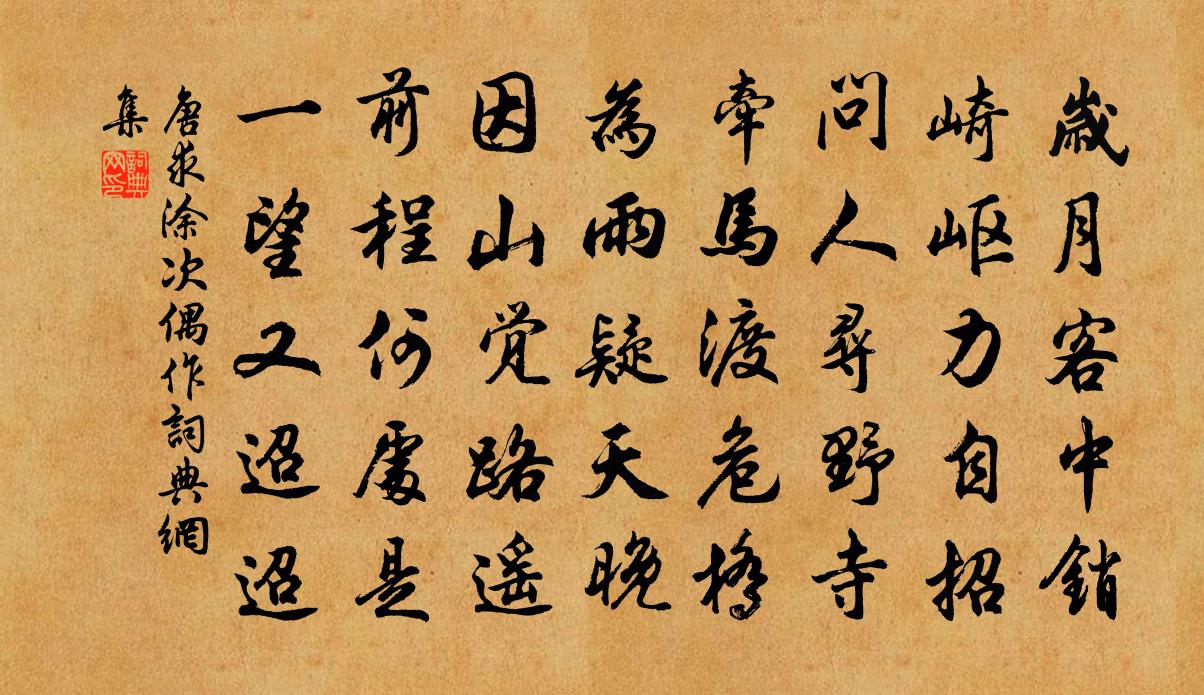 歲月客中銷
崎岖力自招
問人尋野寺
牽馬渡危橋
為雨疑天晚
因山觉路遥
前程何處是
一望又迢迢
唐求涂次偶作詞典網
集
詞典网印